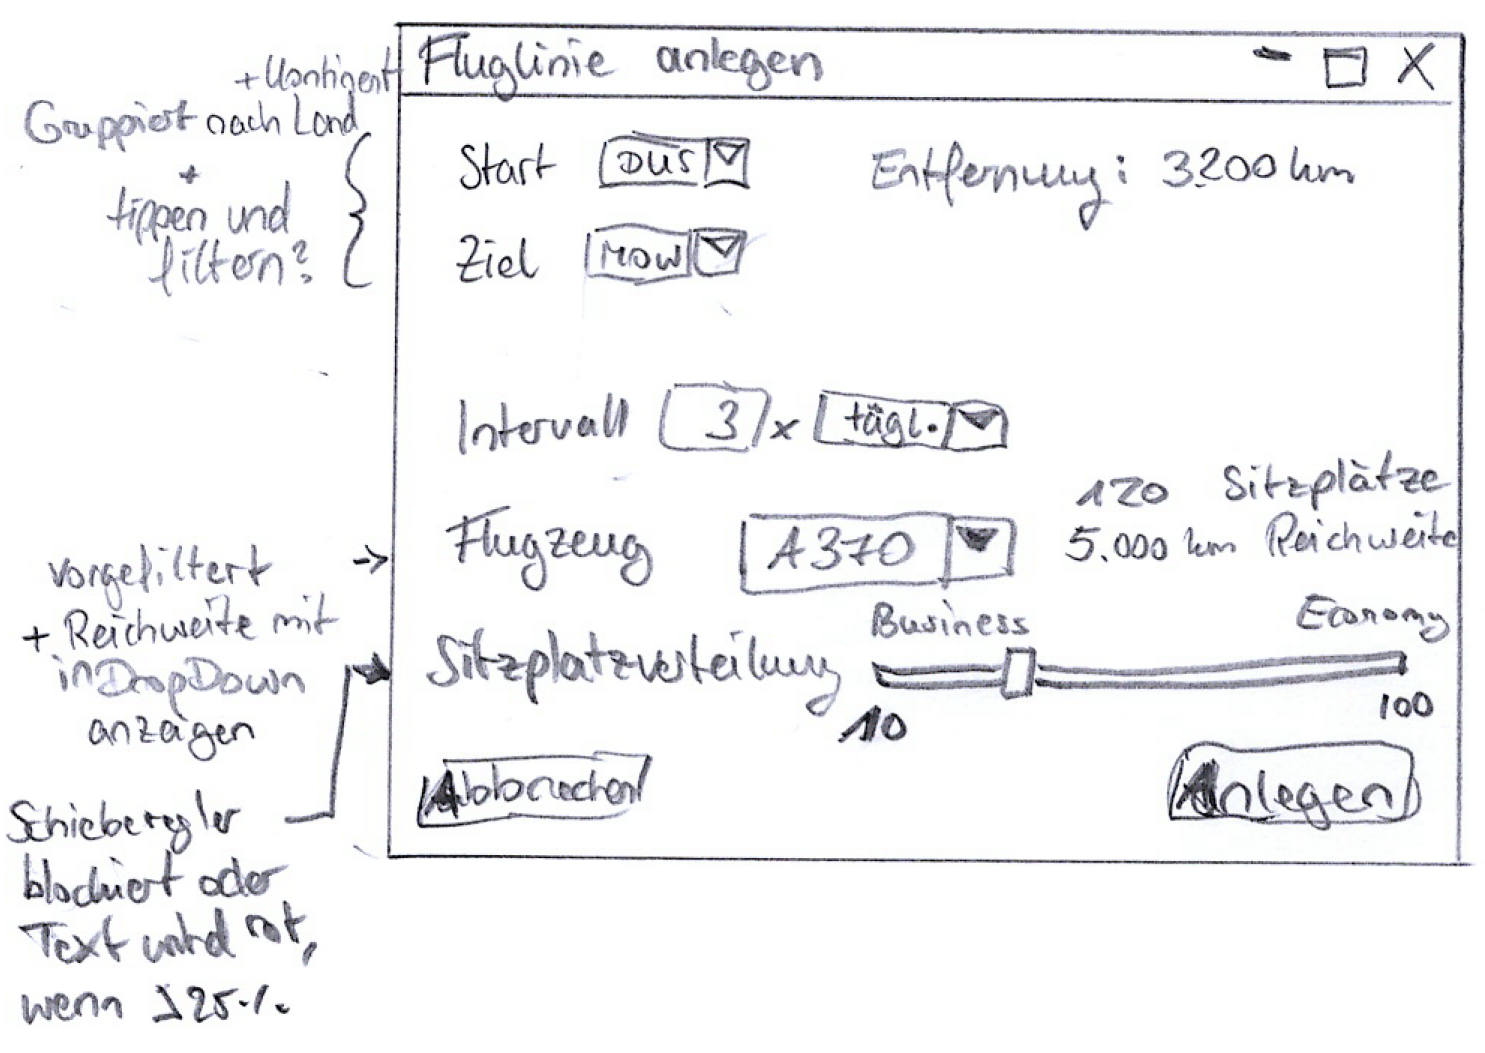 Fluglinie anlegen
+ Kontigent
Gruppiert nach Land
+
tippen und
filtern?
Start DUS
Entfernung: 3.200 km
Ziel MOW
Intervall 3 x tägl.
Flugzeug A370
120 Sitzplätze
5.000 km Reichweite
vorgefiltert
+ Reichweite mit
in DropDown
anzeigen
Sitzplatzverteilung
Business Economy
10 100
Schieberegler
blockiert oder
Text wird rot,
wenn 25%
Abbrechen
Anlegen